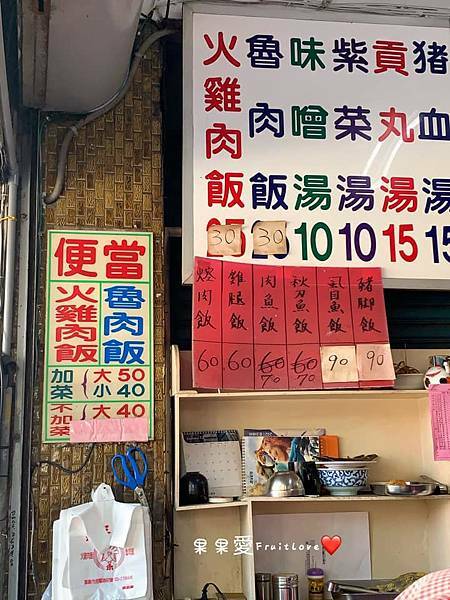 火雞肉飯 30
魯肉飯 30
味噌湯 10
紫菜湯 10
貢丸湯 15
猪血湯 15
便當
火雞肉飯
魯肉飯
加菜 大50
小40
不加菜 大40
焢肉飯 60
雞腿飯 60
肉魚飯 60 70
秋刀魚飯 60 70
虱目魚飯 90
豬脚飯 90
果果愛Fruitlove